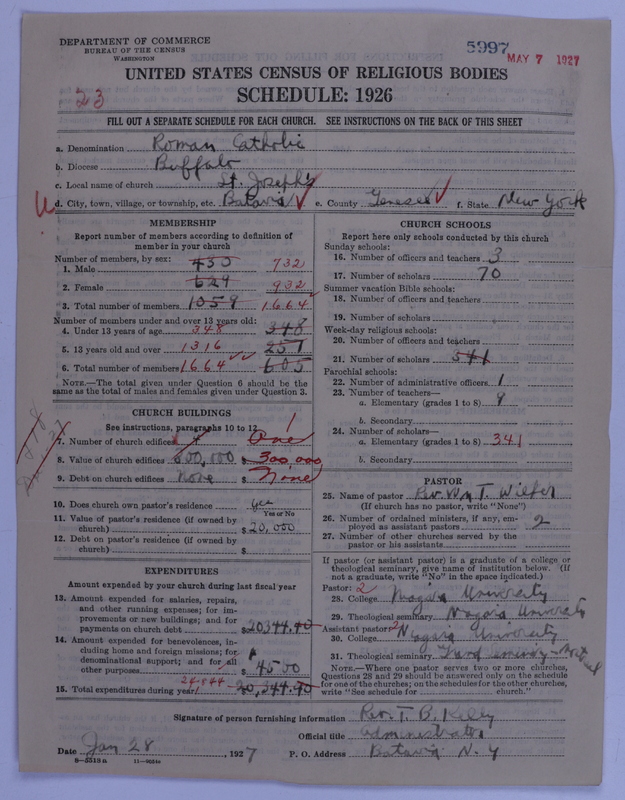 DEPARTMENT OF COMMERCE
BUREAU OF THE CENSUS
WASHINGTON
5997
MAY 7 1927
UNITED STATES CENSUS OF RELIGIOUS BODIES
SCHEDULE: 1926
23
FILL OUT A SEPARATE SCHEDULE FOR EACH CHURCH. SEE INSTRUCTIONS ON THE BACK OF THIS SHEET
a. Denomination Roman Catholic
b. Diocese Buffalo
c. Local name of church St. Joseph's
d. City, town, village, or township, etc. Batavia e. County Genesee f. State New York
MEMBERSHIP
Report number of members according to definition of
member in your church
Number of members, by sex:
1. Male 430 732
2. Female 629 932
3. Total number of members 1059 1664
Number of members under and over 13 years old:
4. Under 13 years of age 348 348
5. 13 years old and over 1316 257
6. Total number of members 1664 605
NOTE.—The total given under Question 6 should be the
same as the total of males and females given under Question 3.
CHURCH BUILDINGS
See instructions, paragraphs 10 to 12
7. Number of church edifices One 1
8. Value of church edifices 600,000 $ 300,000
9. Debt on church edifices None $ None
10. Does church own pastor's residence yes
Yes or No
11. Value of pastor's residence (if owned by
church) $ 20,000
12. Debt on pastor's residence (if owned by
church) $
EXPENDITURES
Amount expended by your church during last fiscal year
13. Amount expended for salaries, repairs,
and other running expenses; for im-
provements or new buildings; and for
payments on church debt $ 20344.40
14. Amount expended for benevolences, in-
cluding home and foreign missions; for
denominational support; and for all
other purposes $ 4500
24.844
15. Total expenditures during year $ 20,344.40
CHURCH SCHOOLS
Report here only schools conducted by this church
Sunday schools:
16. Number of officers and teachers 3
17. Number of scholars 70
Summer vacation Bible schools:
18. Number of officers and teachers
19. Number of scholars
Week-day religious schools:
20. Number of officers and teachers
21. Number of scholars 541
Parochial schools:
22. Number of administrative officers 1
23. Number of teachers—
a. Elementary (grades 1 to 8) 9
b. Secondary
24. Number of scholars—
a. Elementary (grades 1 to 8) 341
b. Secondary
PASTOR
25. Name of pastor Rev. Wm T.
(If church has no pastor, write "None")
26. Number of ordained ministers, if any, em-
ployed as assistant pastors 2
27. Number of other churches served by the
pastor or his assistants
If pastor (or assistant pastor) is a graduate of a college or
theological seminary, give name of institution below. (If
not a graduate, write "No" in the space indicated.)
Pastor: 2
28. College Niagara University
29. Theological seminary Niagara University
Assistant pastor: 2
30. College Niagara University
31. Theological seminary
NOTE.—Where one pastor serves two or more churches,
Questions 28 and 29 should be answered only on the schedule
for one of the churches; on the schedules for the other churches,
write "See schedule for church."
Signature of person furnishing information Rev. T. B. Kelly
Official title administrator
Date Jan 28, 1927 P. O. Address Batavia N. Y
8—5518a 11—9051